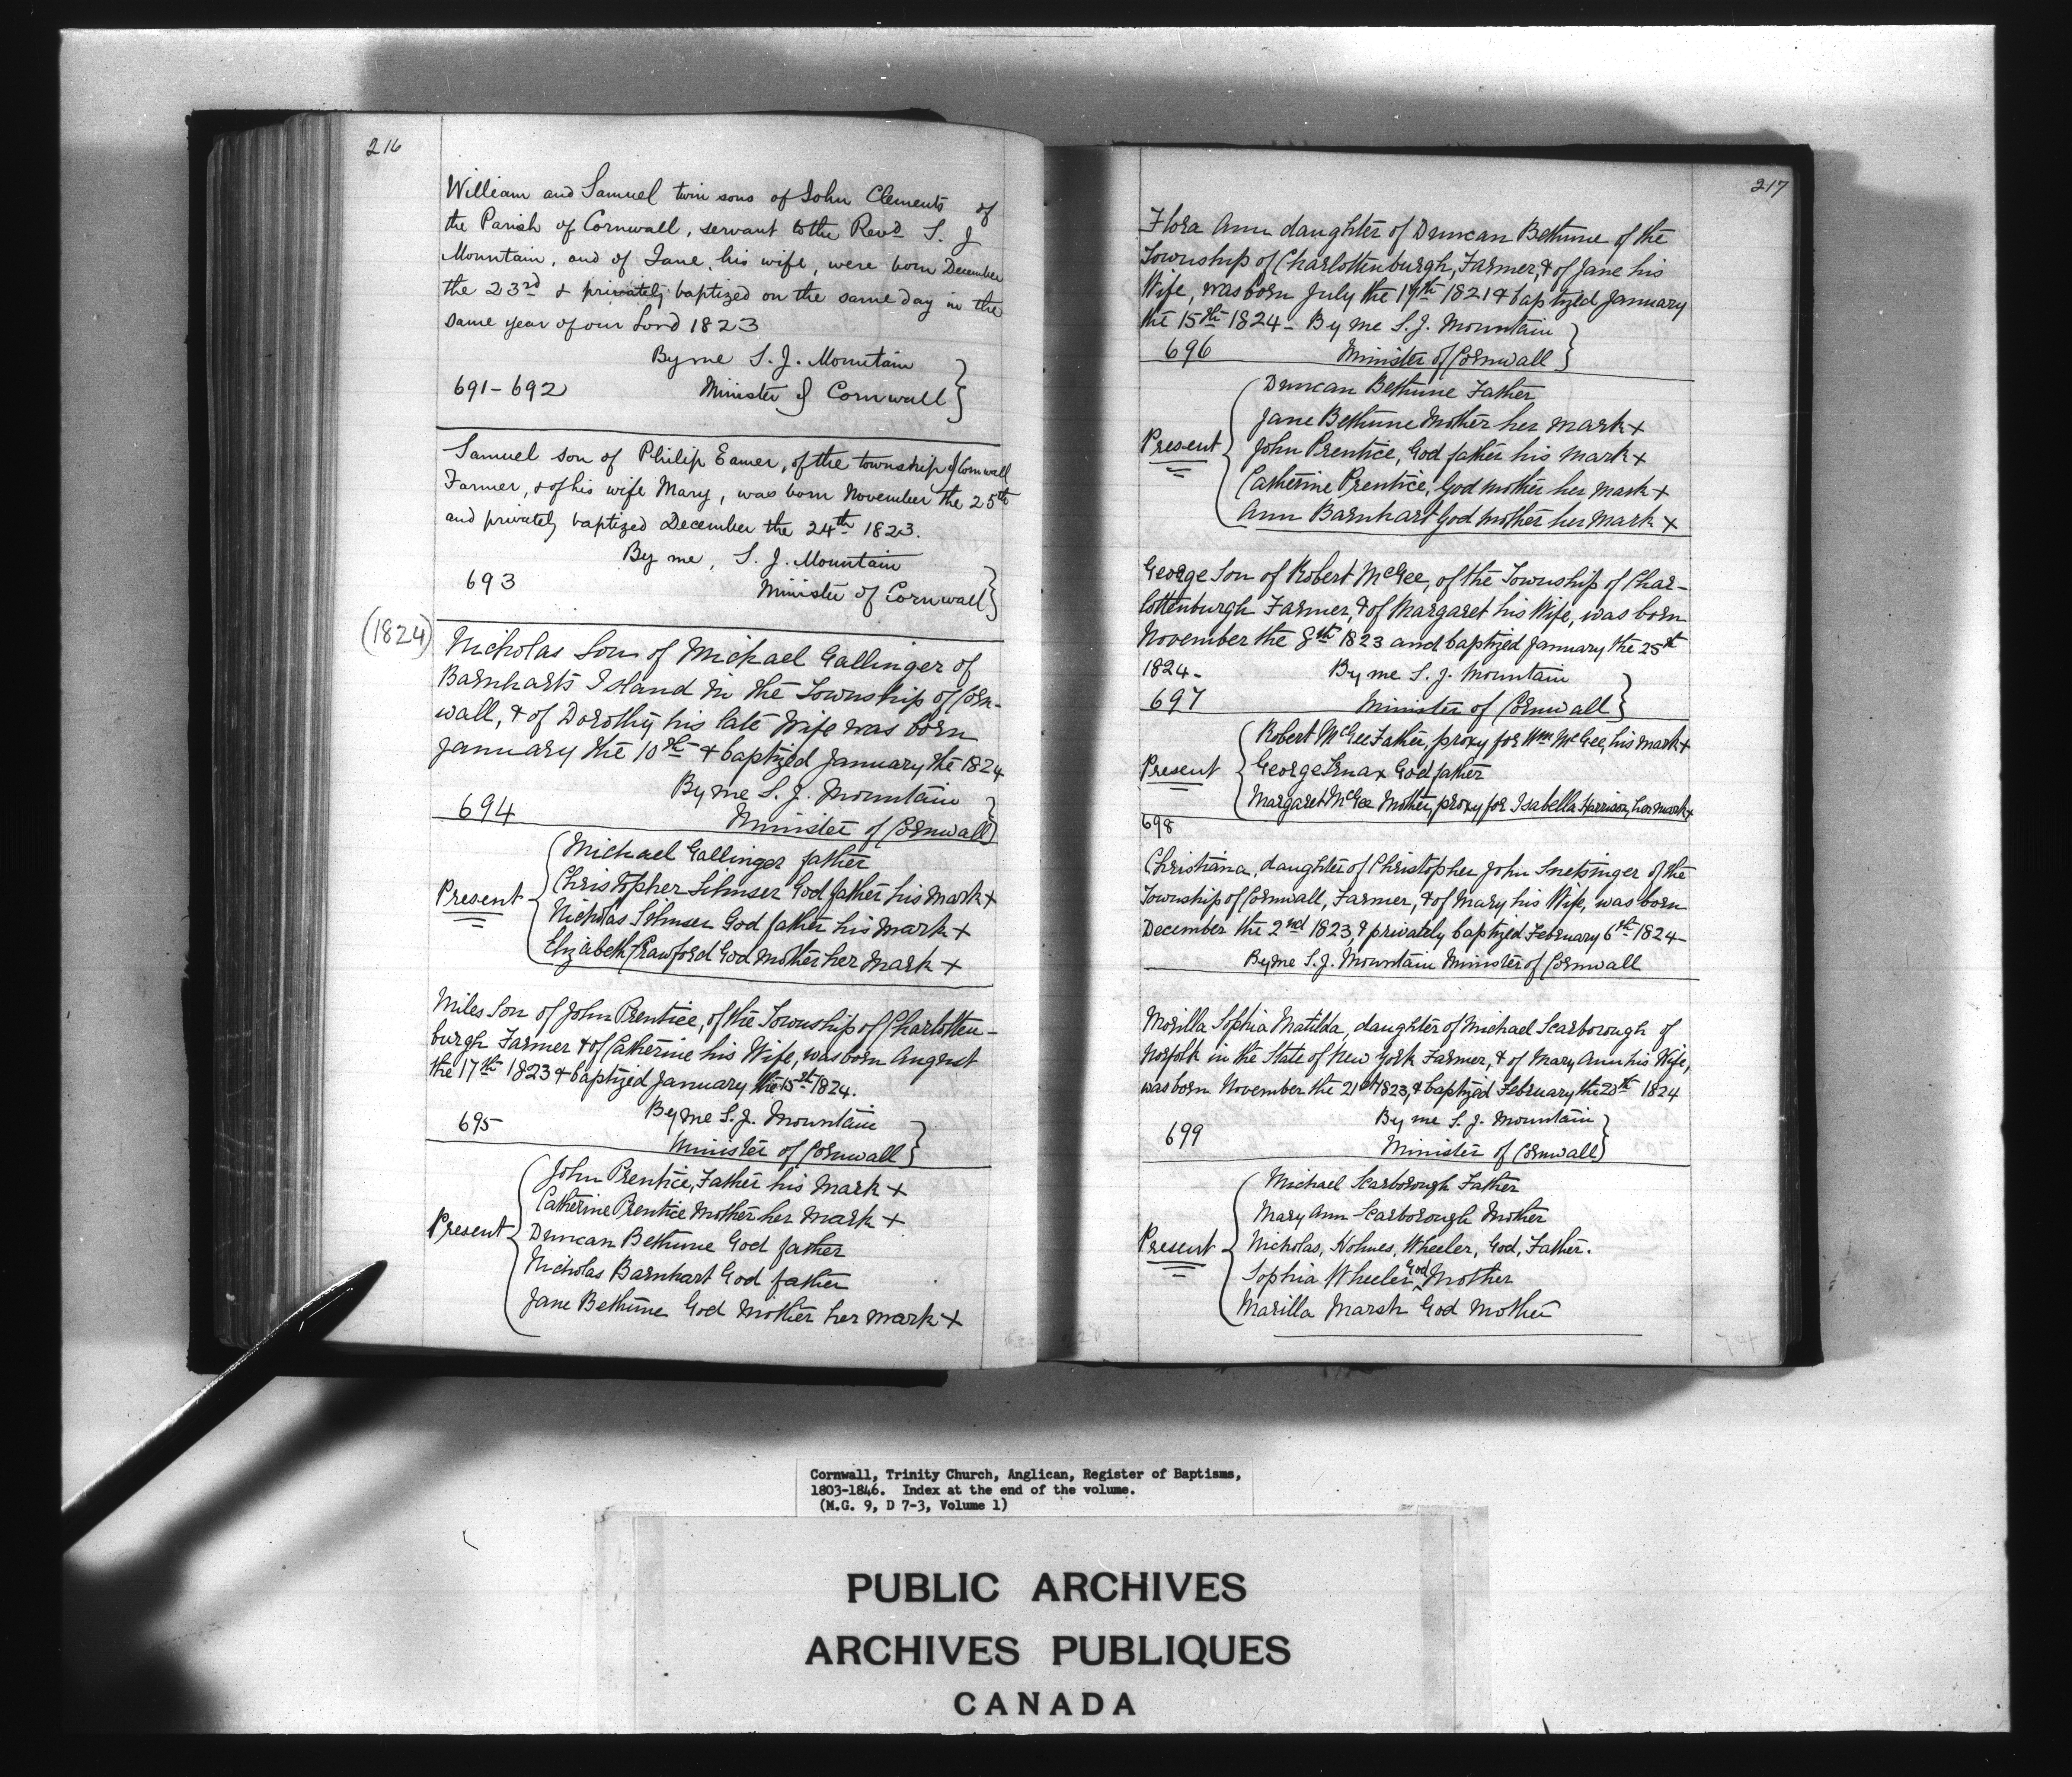 216
William and Samuel twin sons of John Clements of
the Parish of Cornwall, servant to the Revd. S. J
Mountain, and of Jane, his wife, were born December
the 23rd & privately baptized on the same day in the
same year of our Lord 1823
By me S. J. Mountain
691-692 Minister of Cornwall
Samuel son of Philip Eamer, of the township of Cornwall
Farmer, & of his wife Mary, was born November the 25th
and privately baptized December the 24th 1823.
By me, S. J. Mountain
693 Minister of Cornwall
(1824)
Nicholas Son of Michael Gallinger of
Barnharts Island in the Township of Corn-
wall, & of Dorothy his late Wife was born
January the 10th & baptized January the 1824
By me S. J. Mountain
694 Minister of Cornwall
Michael Gallinger father
Christopher God father his mark +
Present Nicholas God father his mark +
Elizabeth Crawford God Mother her mark +
Miles Son of John Prentice, of the Township of Charlotten-
burgh Farmer & of Catherine his Wife, was born August
the 17th 1823 & baptized January the 15th 1824.
By me S. J. Mountain
695 Minister of Cornwall
John Prentice, Father his mark +
Catherine Prentice Mother her mark +
Present Duncan Bethune God father
Nicholas Barnhart God father
Jane Bethune God Mother her mark +
217
Flora Ann daughter of Duncan Bethune of the
Township of Charlottenburgh, Farmer, & of Jane his
Wife, was born July the 1821 & baptized January
the 15th 1824 - By me S. J. Mountain
696 Minister of Cornwall
Duncan Bethune Father
Jane Bethune Mother her mark +
Present John Prentice, God father his mark +
Catherine Prentice, God mother her mark +
Ann Barnhart God mother her mark +
George Son of Robert McGee, of the Township of Char-
lottenburgh Farmer, & of Margaret his Wife, was born
November the 8th 1823 and baptized January the 25th
1824. By me S. J. Mountain
697 Minister of Cornwall
Robert McGee Father, proxy for Wm McGee, his mark +
Present George God father
Margaret McGee Mother, proxy for Isabella Harrison, her mark +
698
Christiana, daughter of Christopher John Snetsinger of the
Township of Cornwall, Farmer, & of Mary his Wife, was born
December the 2nd 1823, & privately baptized February 6th 1824 -
By me S. J. Mountain Minister of Cornwall
Morilla Sophia Matilda, daughter of Michael Scarborough of
Norfolk in the State of New York Farmer, & of Mary Ann his Wife,
was born November the 21st 1823, & baptized February the 20th 1824
By me S. J. Mountain
699 Minister of Cornwall
Michael Scarborough Father
Mary Ann Scarborough Mother
Present Nicholas, Holmes, Wheeler, God, Father.
Sophia Wheeler God Mother
Marilla Marsh God Mother
74
Cornwall, Trinity Church, Anglican, Register of Baptisms,
1803-1846. Index at the end of the volume.
(M.G. 9, D 7-3, Volume 1)
PUBLIC ARCHIVES
ARCHIVES PUBLIQUES
CANADA